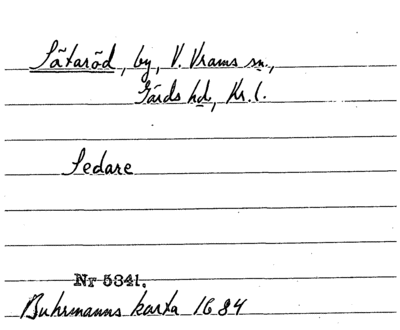 Sätaröd, by, V. Vrams sn.,
Gärds hd, Kr. l.
Sedare
Nr 5341.
Buhrmanns karta 1684